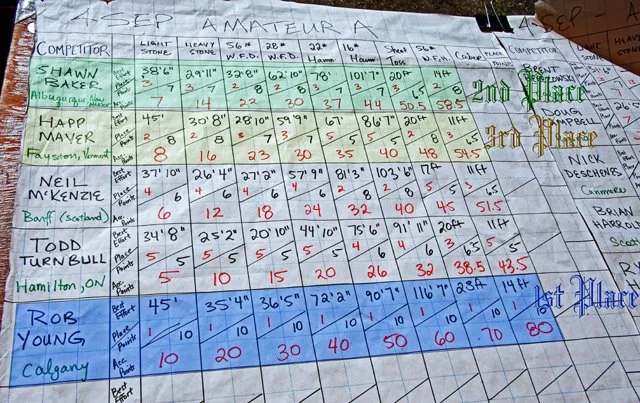 4-SEP AMATEUR A
4-SEP - A
COMPETITOR LIGHT STONE HEAVY STONE 56# W.F.D. 28# W.F.D. 22# Hamm 16# Hamm Sheaf Toss 56# W.F.H Caber PLACE POINTS COMPETITOR
SHAWN BAKER Albuquerque New Mexico
Best Effort 38'6" 29'11" 32'8" 62'10" 78' 101'7" 20ft 14ft
Place Points 3 7 3 7 2 8 2 8 3 7 3 7 3 6.5 2 8
Acc. Points 7 14 22 30 37 44 50.5 58.5
2nd Place
HAPP MAYER Fayston, Vermont
Best Effort 45' 30'8" 28'10" 59'9" 67' 86'7" 20ft 11ft
Place Points 2 8 2 8 3 7 3 7 5 5 5 5 2 8 3 6.5
Acc. Points 8 16 23 30 35 40 48 54.5
3rd Place
NEIL McKENZIE Banff (scotland)
Best Effort 37'10" 26'4" 27'2" 57'9" 81'3" 103'6" 17ft 11ft
Place Points 4 6 4 6 4 6 4 6 2 8 2 8 5 5 3 6.5
Acc. Points 6 12 18 24 32 40 45 51.5
TODD TURNBULL Hamilton, ON
Best Effort 34'8" 25'2" 20'10" 44'10" 75'6" 91'11" 20ft 11ft
Place Points 5 5 5 5 5 5 5 5 4 6 4 6 3 6.5 5 5
Acc. Points 5 10 15 20 26 32 38.5 43.5
ROB YOUNG Calgary
Best Effort 45' 35'4" 36'5" 72'2" 90'7" 116'7" 23ft 14ft
Place Points 1 10 1 10 1 10 1 10 1 10 1 10 1 10 1
Acc. Points 10 20 30 40 50 60 70 80
1st Place
Best Effort
BRENT
DOUG CAMPBELL
NICK DESCHÊNES
Canmore
BRIAN HARROL
Scotl